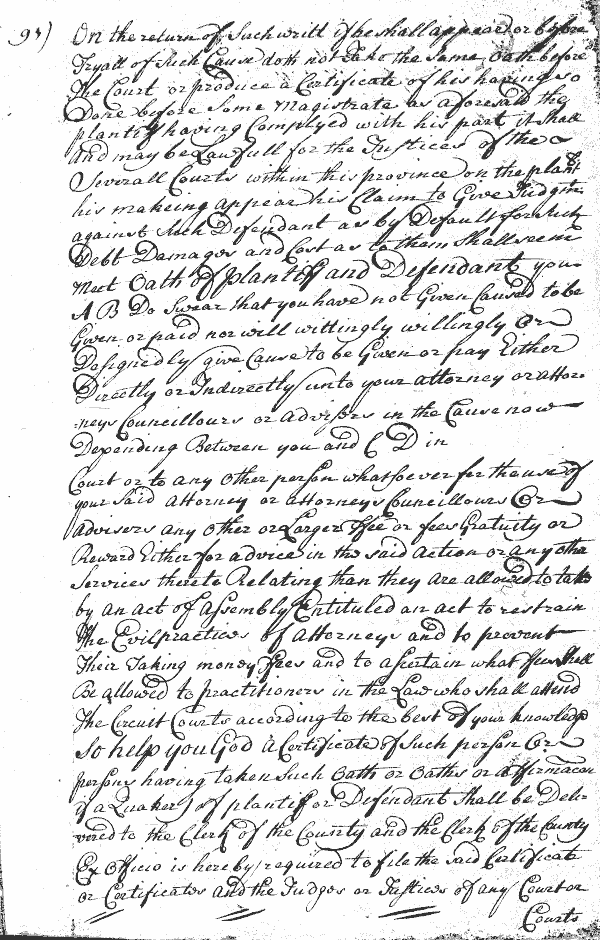 94)
On the return of Such writt if he shall appear or before
Tryall of Such Cause doth not Take the same Oath before
The Court or produce a Certificate of his having so
Done before Some Magistrate as aforesaid the
plantif having Complyed with his part it shall
And may be Lawfull for the Justices of the
Severall Courts within this province on the plant
his makeing appear his Claim to Give Judgmt
against Such Defendant as by Default for Such
Debt Damages and Cost as to them Shall seem
Meet Oath of plantiff and Defendant you
A B Do Swear that you have not Given Caused to be
Given or paid nor will wittingly willingly Or
Designedly give Cause to be Given or pay Either
Directly or Indirectly unto your attorney or attor-
-neys Councillours or advisers in the Cause now
Depending Between you and C D in
Court or to any Other person whatsoever for the use of
your Said Attorney or attorneys Councillours Or
Advisers any Other or Larger ffee or fees Gratuity or
Reward Either for advice in the said Action or any other
Services thereto Relating than they are allowed to take
by an act of Assembly Entituled an act to restrain
The Evil practices of attorneys and to prevent
Their Taking money ffees and to ascertain what ffees shall
Be allowed to practitioners in the Law who shall attend
The Circuit Courts according to the best of your knowledge
So help you God A Certificate of Such person Or
persons having taken Such Oath or Oaths or affirmacon
if a Quaker of plantif or Defendant Shall be Deli-
vered to the Clerk of the County and the Clerk of the County
Ex Officio is hereby required to file the said Certificate
or Certificates and the Judges or Justices of any Court or
Courts